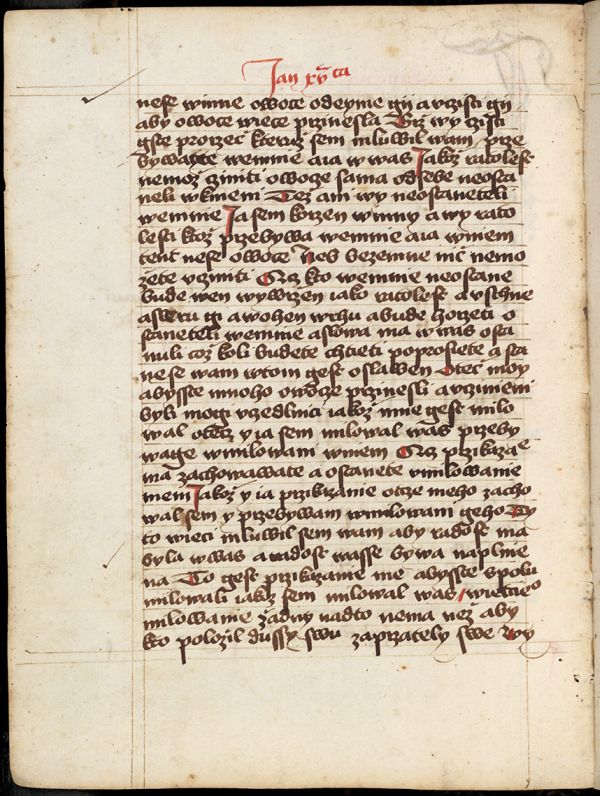 Jan xv ta
nese winne owotce odeyme gij a vzisti gij
aby owotce wiece przinesla Giz wy czisti
gste prorzecz kteruz sem mluwil wam prze
bywagte wemnie a ia w was Jakoz ratolest
nemoz cziniti owocze sama od sebe neosta
neli w kmeni Tez ani wy neostaneteli
wemnie Ja sem korzen winny a wy rato
lesti ktoz przebywa wemnie a ia wniem
tent nese owotce Nes bezemne nic nemo
zete vcziniti Gez kto wemnie neostane
bude wen wywrzen iako ratolest a vschne
a sberu gi a wohen wrhu a bude horzeti o
staneteli wemnie a slowa ma w was osta
nuli coz koli budete chtieti poprosiete a sta
ne se wam w tom gest oslawen Otecz moy
abysste mnoho owocze przinesli a vczinieni
byli mogi vczedlnici iakoz mne gest milo
wal otecz y ia sem milowal was przeby
wage w milowani mem Gez przikaza
ma zachowawate a ostanete vmilowanie
mem Jakoz y ia przikazanie otcze meho zacho
wal sem y przebywam w milowani geho Ty
to wieci mluwil sem wam aby radost ma
byla w was a radost wasse bywa naplnie
na To gest przikazanie me abysste spolu
milowali iakoz sem milowal was wietcieo
milowanie zadny nadto nema nez aby
kto polozil dussy swu za przately swe Wy